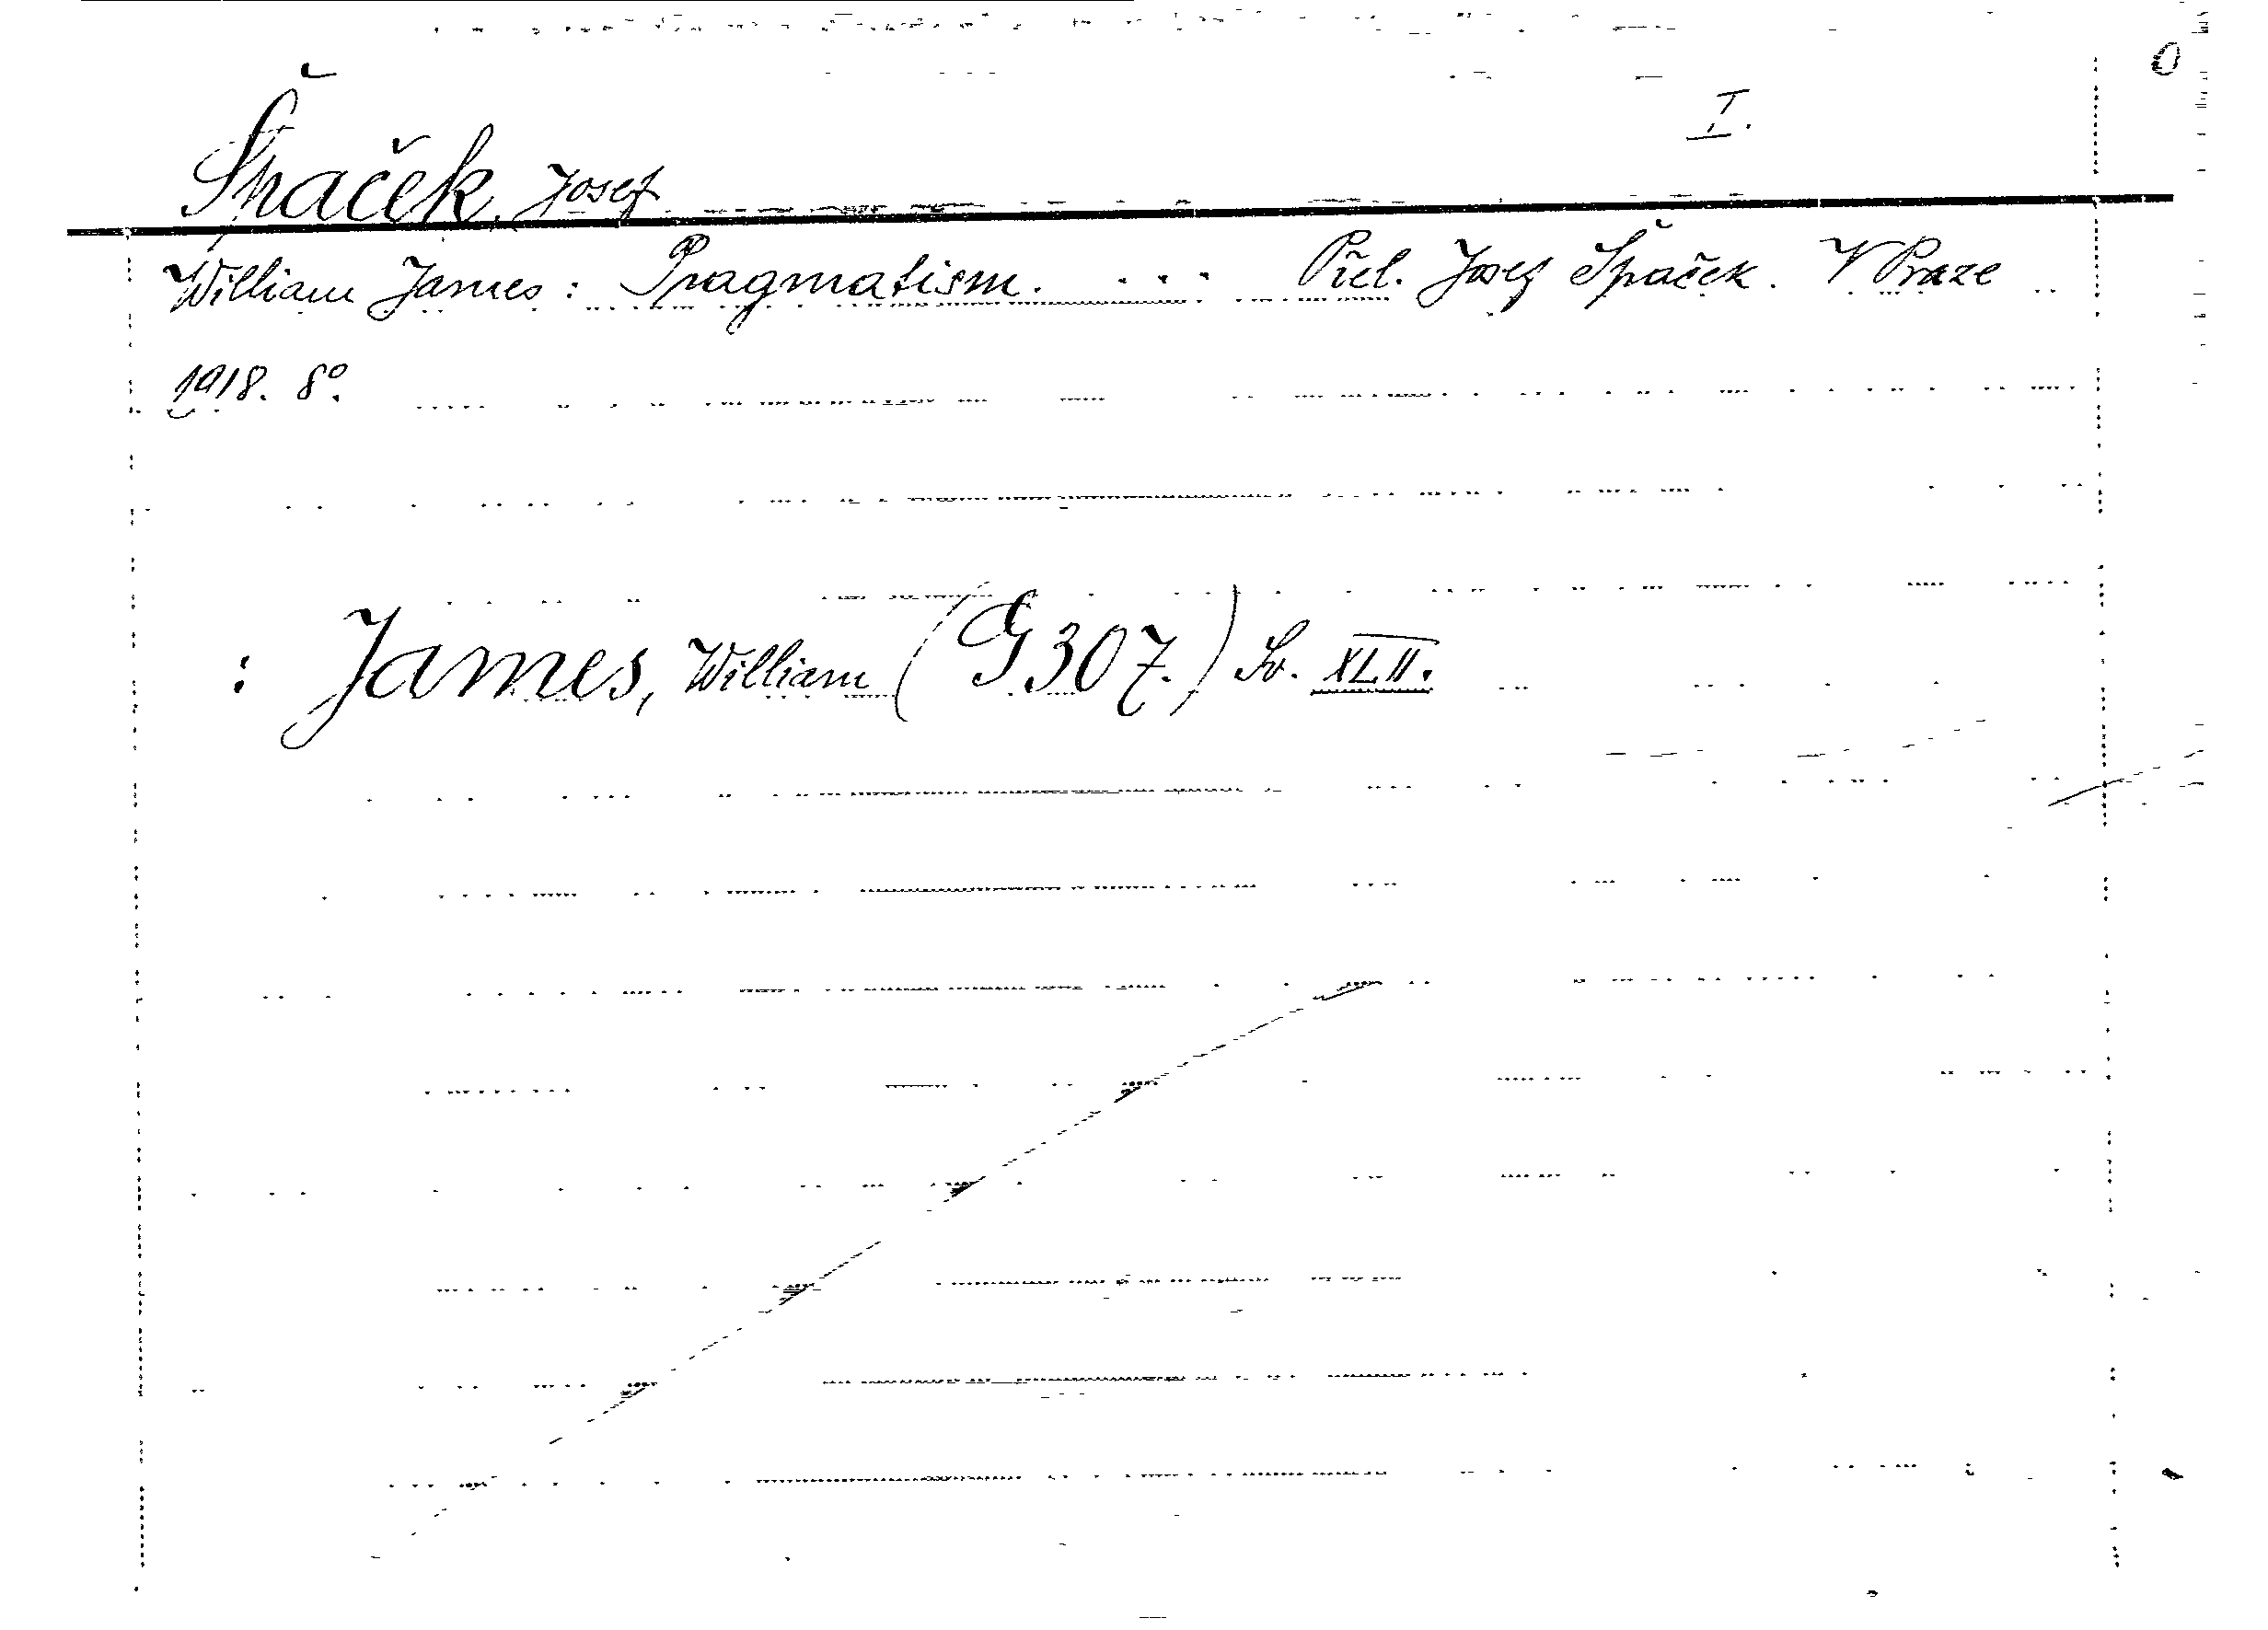 I.
Špaček, Josef
William James: Pragmatism. ... Přel. Josef Špaček. V Praze
1918. 8º.
: James, William (G 307.) Sv. XLII.